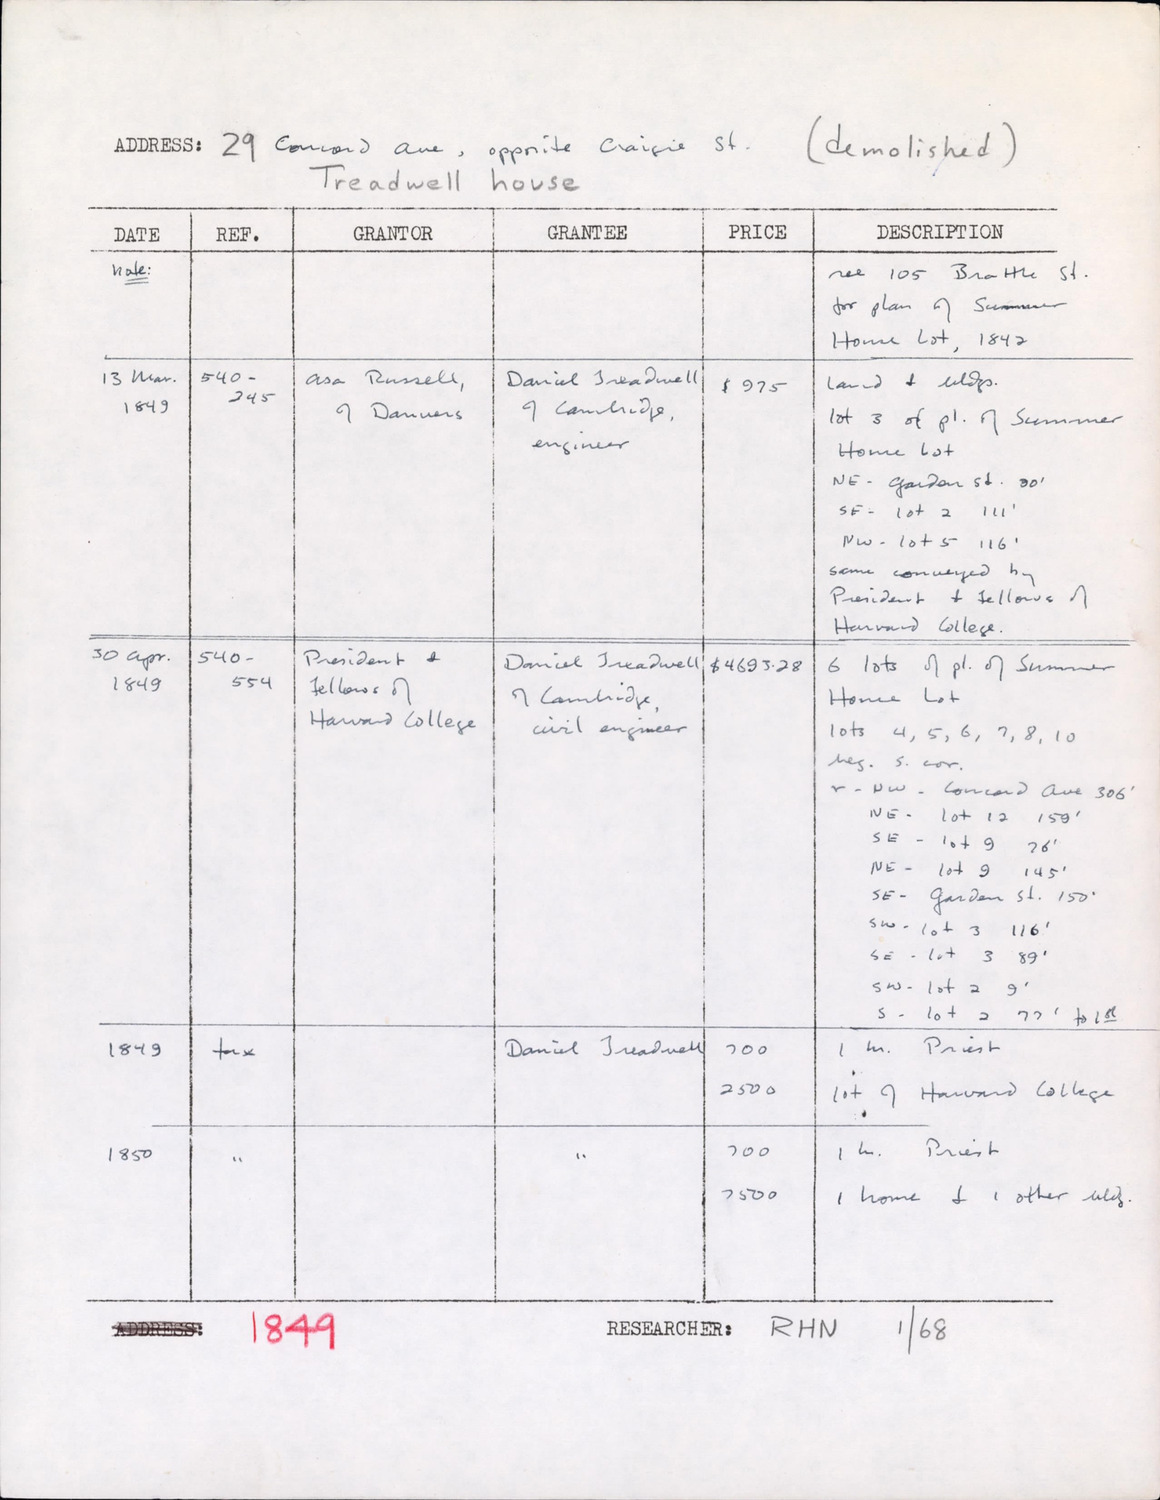 ADDRESS: 29 Concord Ave, opposite Craigie St. (demolished)
Treadwell house
DATE REF. GRANTOR GRANTEE PRICE DESCRIPTION
Note: see 105 Brattle St.
for plan of Summer
House Lot, 1842
13 Mar. 540- Asa Russell, Daniel Treadwell $975 land & bldgs.
1849 245 of Danvers of Cambridge, lot 3 of pl. of Summer
engineer House Lot
NE - Garden St. 90'
SE - lot 2 111'
NW - lot 5 116'
same conveyed by
President & Fellows of
Harvard College.
30 Apr. 540- President & Daniel Treadwell $4693.28 6 lots of pl. of Summer
1849 554 Fellows of of Cambridge, House Lot
Harvard College civil engineer lots 4, 5, 6, 7, 8, 10
beg. S. cor.
r - NW - Concord Ave 306'
NE - lot 12 159'
SE - lot 9 76'
NE - lot 9 145'
SE - Garden St. 150'
SW - lot 3 116'
SE - lot 3 89'
SW - lot 2 9'
S - lot 2 77' to 1st
1849 tax Daniel Treadwell 700 1 h. Priest
2500 lot of Harvard College
1850 " " 700 1 h. Priest
7500 1 house & 1 other bldg.
ADDRESS: 1849 RESEARCHER: RHN 1/68